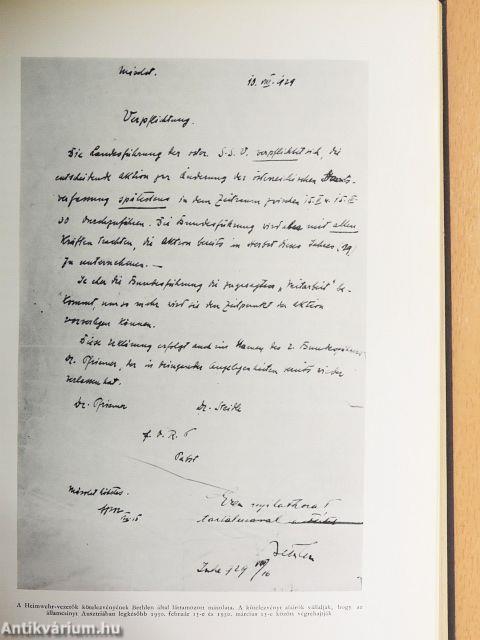 Másolat.
13. VIII. 929
Verpflichtung.
Die Landesführung der österr. S.S.V. verpflichtet sich, die
entscheidende Aktion zur Änderung des österreichischen Staats-
verfassung spätestens in dem Zeitraum zwischen 15.II u. 15.III
30 durchzuführen. Die Bundesführung wird aber mit allen
Kräften trachten, die Aktion bereits im Herbst dieses Jahres, 29,
zu unternehmen.—
Je eher die Bundesführung die zugesagte „Mitarbeit" be-
kommt, umso mehr wird sie den Zeitpunkt der Aktion
vorverlegen können.
Diese Erklärung erfolgt auch im Namen des 2. Bundesführers
Dr. Pfrimer, der in dringenden Angelegenheiten wieder
verlassen hat.
Dr. Pfrimer Dr. Steidle
f. d. R.
Pabst
Másolat hiteles.
Ezen nyilatkozat
tartalmával
Bethlen
Inke 929 VIII/16
A Heimwehr-vezérek kötelezvényének Bethlen által láttamozott másolata. A kötelezvényt aláírók vállalják, hogy az
államcsínyt Ausztriában legkésőbb 1930. február 15-e és 1930. március 15-e között végrehajtják
Antikvárium.hu